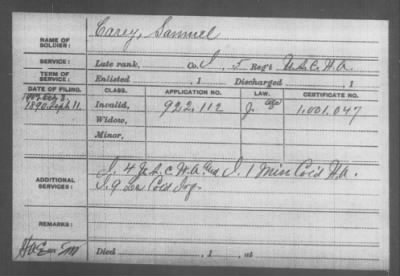 NAME OF SOLDIER: Carey, Samuel
SERVICE: Late rank, Co. I, 5 Reg't U.S.C.H.A.
TERM OF SERVICE: Enlisted , 1 Discharged , 1
DATE OF FILING. CLASS. APPLICATION NO. LAW. CERTIFICATE NO.
1890 Sept. 11 Invalid, 922.112 J. 1,001,047
Widow,
Minor,
ADDITIONAL SERVICES: I. 4 U.S.C.H.A. and I. 1 Miss Cold H.A.
I. 9 La Cold Inf.
REMARKS:
Died , 1 , at